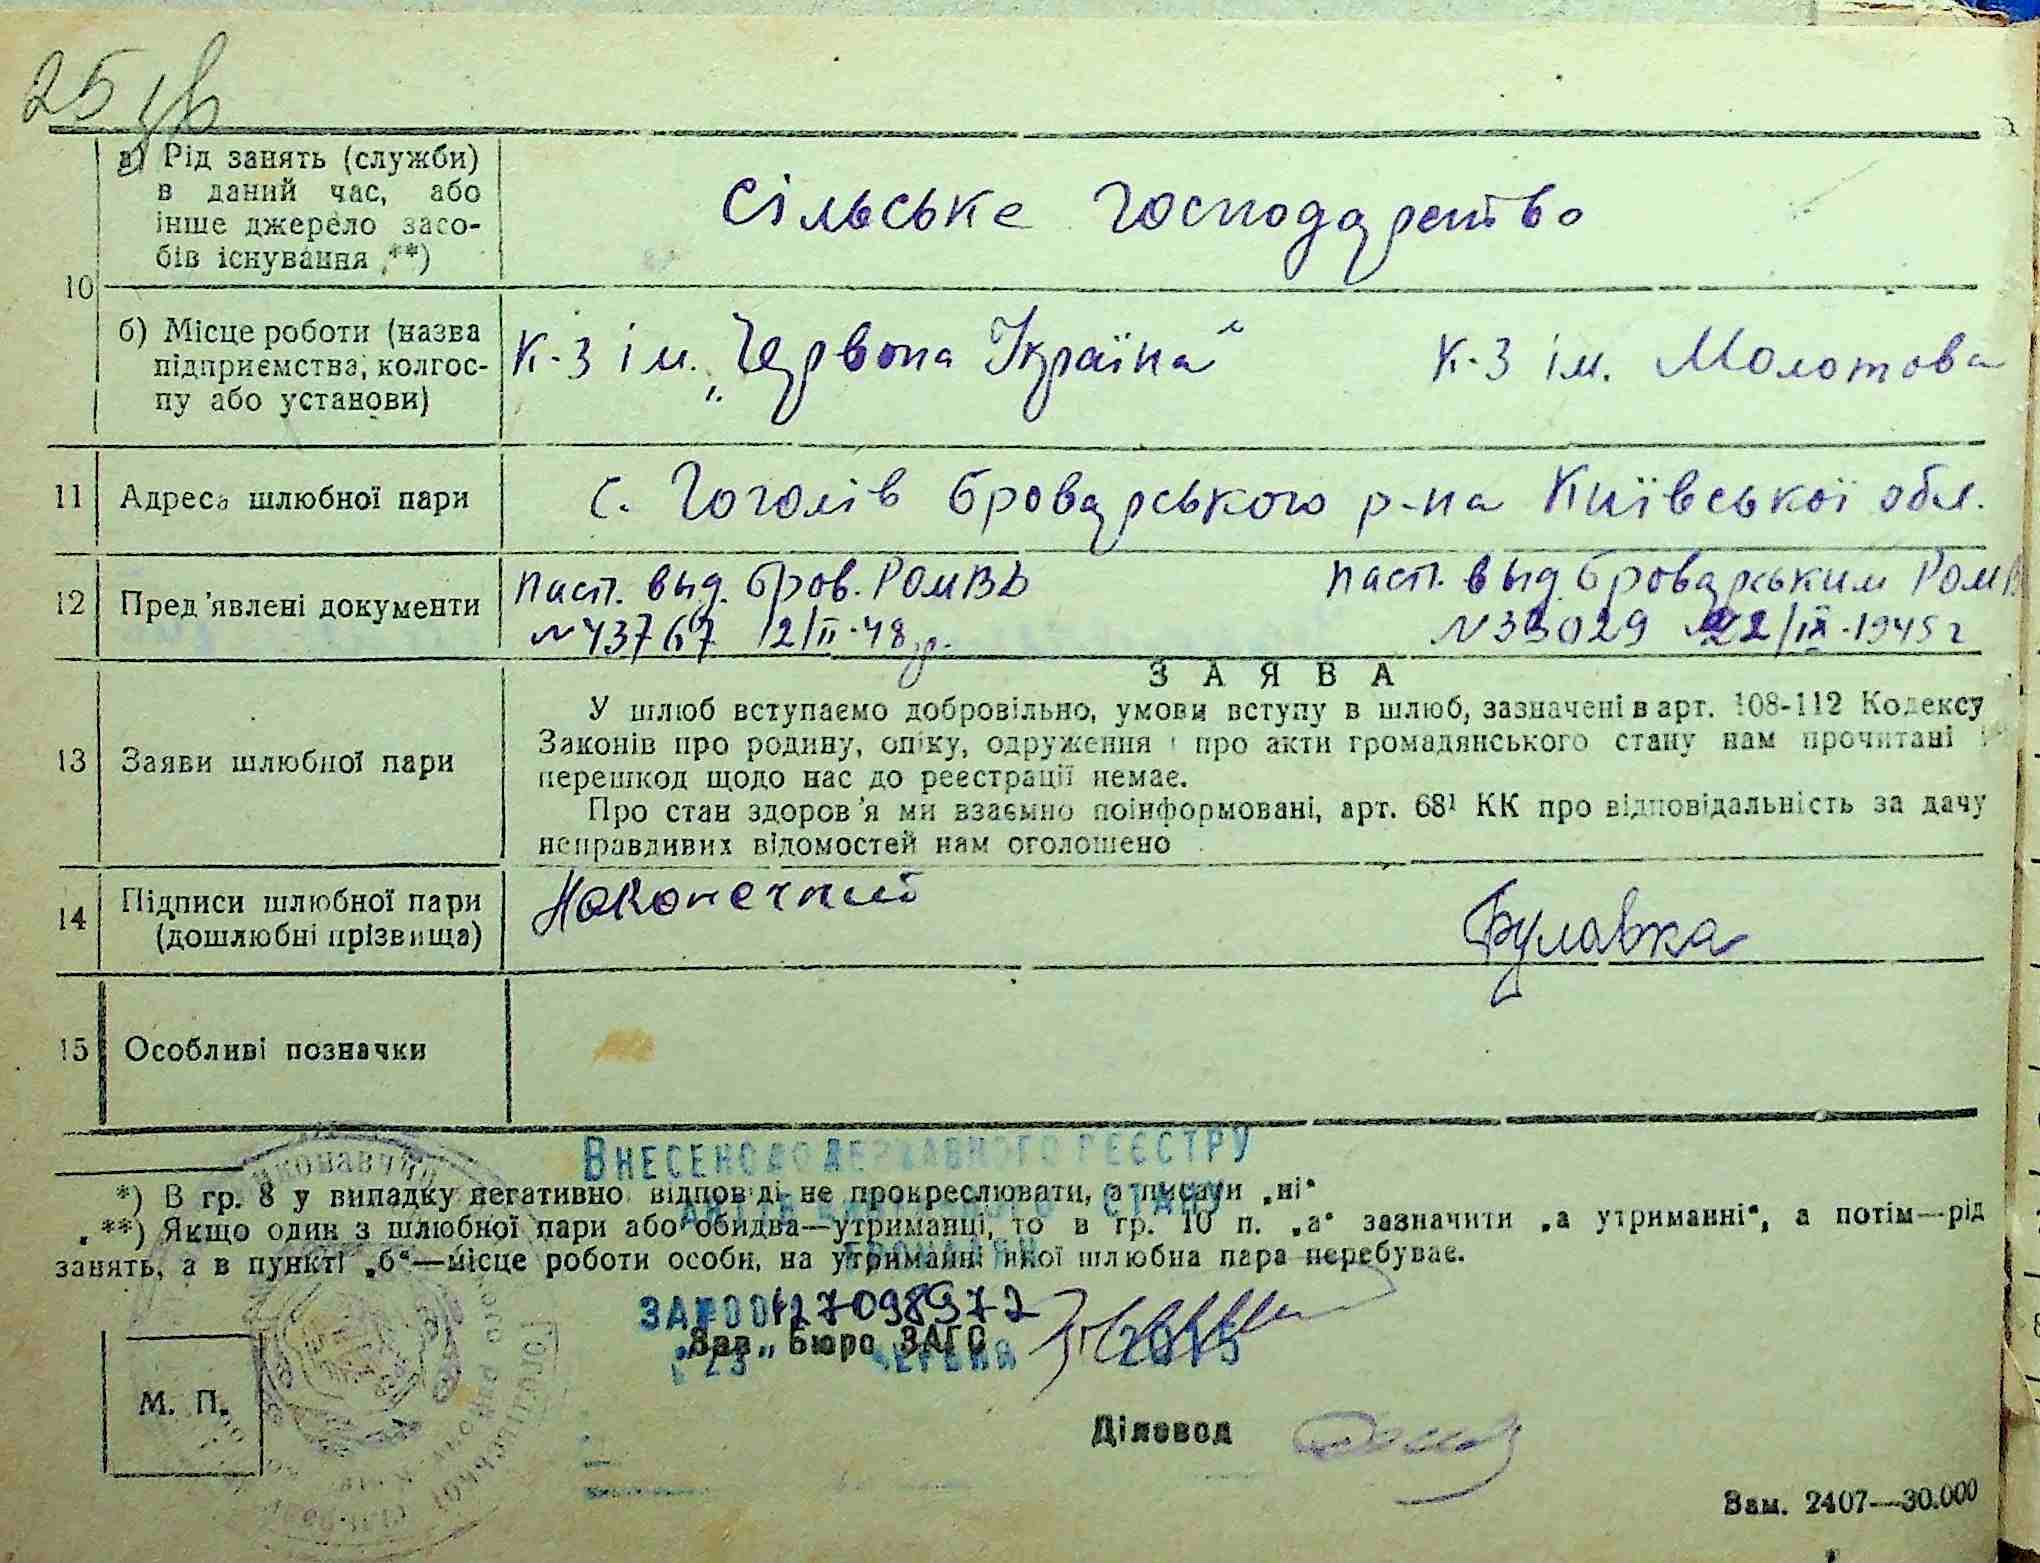 25 зв
а) Рід занять (служби)
в даний час, або
інше джерело засо-
бів існування **)
сільське господарство
10
б) Місце роботи (назва
підприємства, колгос-
пу або установи)
К-з ім. „Червона Україна“
К-з ім. Молотова
11 Адреса шлюбної пари
с. Гоголів Броварського р-на Київської обл.
12 Пред'явлені документи
Пасп. выд. Бров. РОМВД
№43767 12/ІІ-48р.
Пасп. выд. Броварським РОМВ
№33029 22/ІХ-1945г
ЗАЯВА
13 Заяви шлюбної пари
У шлюб вступаємо добровільно, умови вступу в шлюб, зазначені в арт. 108-112 Кодексу
Законів про родину, опіку, одруження і про акти громадянського стану нам прочитані і
перешкод щодо нас до реєстрації немає.
Про стан здоров'я ми взаємно поінформовані, арт. 68¹ КК про відповідальність за дачу
неправдивих відомостей нам оголошено
14 Підписи шлюбної пари
(дошлюбні прізвища)
Наконечний
Булавка
15 Особливі позначки
ВНЕСЕНО ДО ДЕРЖАВНОГО РЕЄСТРУ
*) В гр. 8 у випадку негативно відповіді не прокреслювати, а писати „ні“
АКТІВ ЦИВІЛЬНОГО СТАНУ
**) Якщо один з шлюбної пари або обидва—утриманці, то в гр. 10 п. „а“ зазначити „а утриманні“, а потім—рід
ГРОМАДЯН
занять, а в пункті „б“—місце роботи особи, на утриманні якої шлюбна пара перебуває.
ЗА №00127098972
Зав. Бюро ЗАГС
„23“ ЧЕРВНЯ 2015
М. П.
Діловод
Зам. 2407—30.000